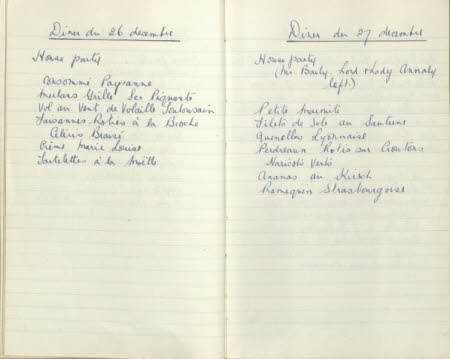 Diner du 26 decembre
House party
Consommé Paysanne
Merlans Grillé Sce Piquante
Vol au Vent de Volaille Toulousain
Faisannes Roties à la Broche
Céleris Braisé
Crème Marie Louise
Tartelettes à la
Diner du 27 decembre
House party
(Mr. Baily, Lord & Lady Annaly
left.)
Petite Marmite
Filets de Sole au Sauterne
Quenelles Lyonnaise
Perdreaux Rotis sur Croutons
Haricots Verts
Ananas au Kirsch
Ramequin Strasbourgoise